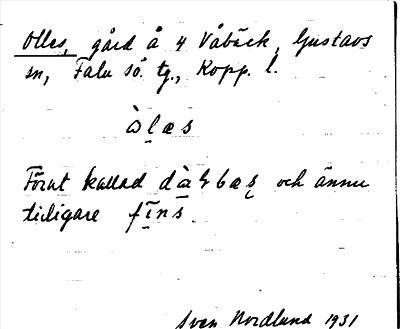 Olles, gård å 4 Våbäck, Gustavs
sn, Falu sö. tg., Kopp. l.
àlæs
Förut kallad dàrbæs och ännu
tidigare fīns.
Sven Nordlund 1931